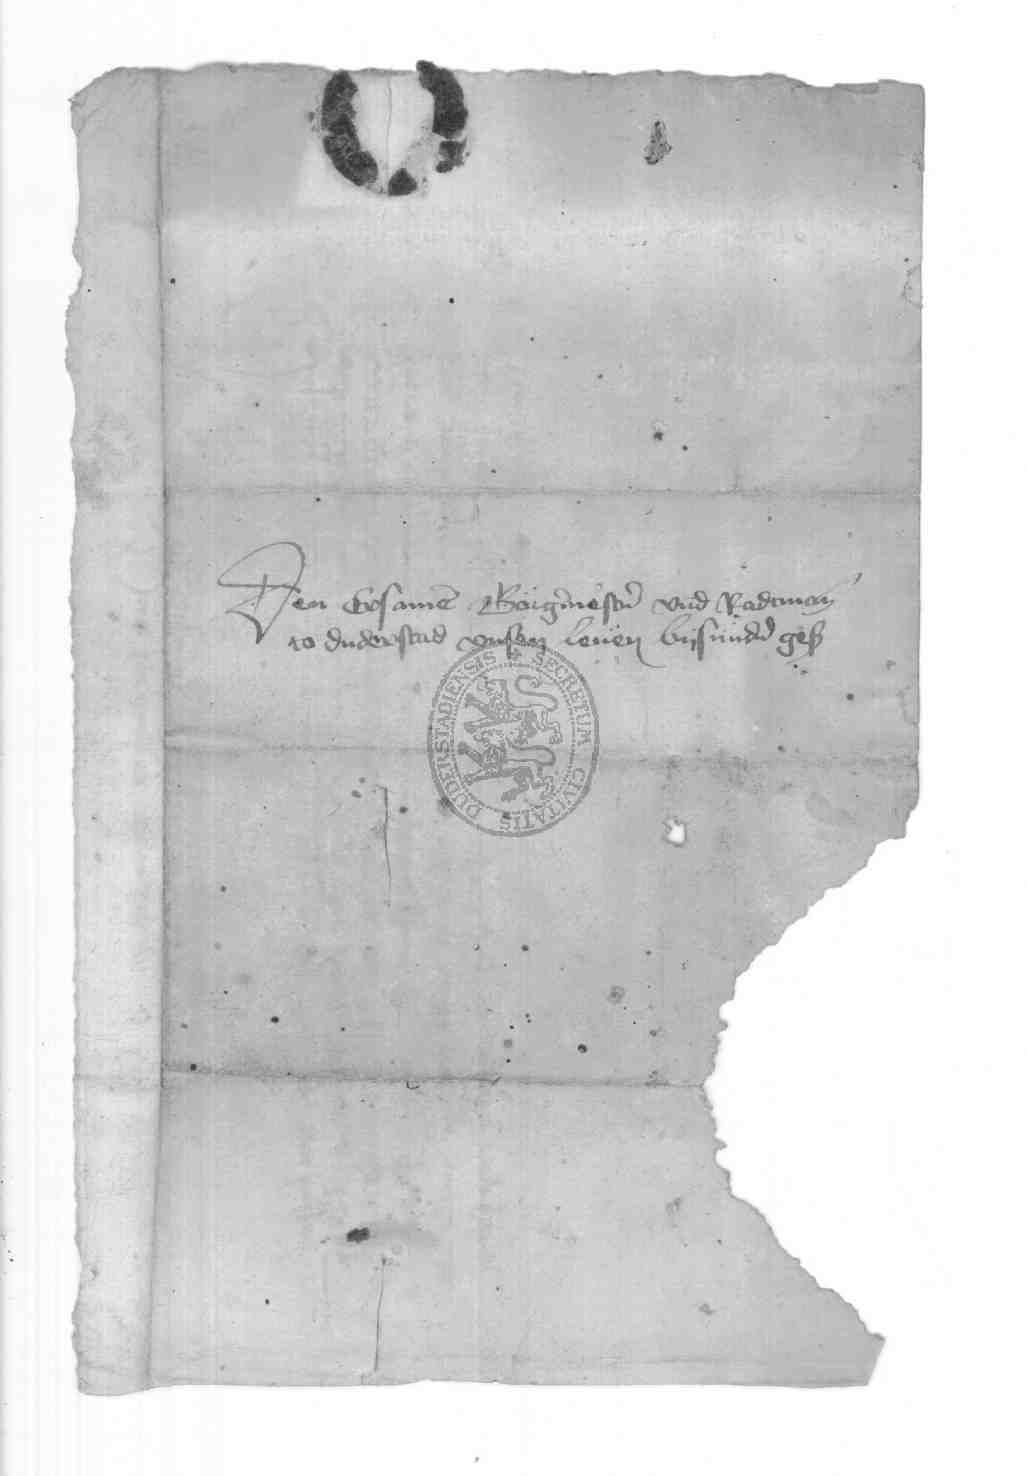 Den Ersamen Borgermestern vnd Radtman
to duderstad vnsen leuen bisundern
SECRETUM CIVITATIS DUDERSTADIENSIS